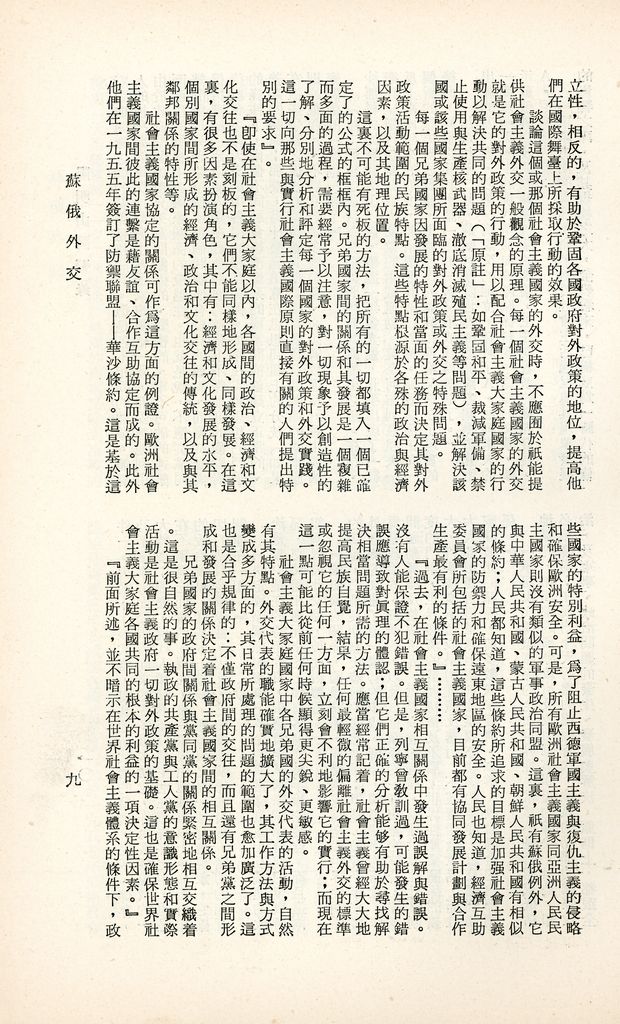 立性，相反的，有助於鞏固各國政府對外政策的地位，提高他
們在國際舞臺上所採取行動的效果。
談論這個或那個社會主義國家的外交時，不應囿於祇能提
供社會主義外交一般觀念的原理。每一個社會主義國家的外交
就是它的對外政策的行動，用以配合社會主義大家庭國家的行
動以解決共同的問題（「原註」：如鞏固和平、裁減軍備、禁
止使用與生產核武器、澈底消滅殖民主義等問題），並解決該
國或該些國家集團所面臨的對外政策或外交之特殊問題。
每一個兄弟國家因發展的特性和當面的任務而決定其對外
政策活動範圍的民族特點。這些特點根源於各殊的政治與經濟
因素，以及其地理位置。
這裏不可能有死板的方法，把所有的一切都填入一個已確
定了的公式的框框內。兄弟國家間的關係和其發展是一個複雜
而多面的過程，需要經常予以注意，對一切現象予以創造性的
了解、分別地分析和評定每一個國家的對外政策和外交實踐。
這一切向那些與實行社會主義國際原則直接有關的人們提出特
別的要求』。
『即使在社會主義大家庭以內，各國間的政治、經濟和文
化交往也不是刻板的，它們不能同樣地形成、同樣發展。在這
裏，有很多因素扮演角色，其中有：經濟和文化發展的水平，
個別國家間所形成的經濟、政治和文化交往的傳統，以及與其
鄰邦關係的特性等。
社會主義國家協定的關係可作爲這方面的例證。歐洲社會
主義國家間彼此的連繫是藉友誼、合作互助協定而成的。此外
他們在一九五五年簽訂了防禦聯盟——華沙條約。這是基於這
蘇俄外交
些國家的特別利益，爲了阻止西德軍國主義與復仇主義的侵略
和確保歐洲安全。可是，所有歐洲社會主義國家同亞洲人民民
主國家則沒有類似的軍事政治同盟。這裏，祇有蘇俄例外，它
與中華人民共和國、蒙古人民共和國、朝鮮人民共和國有相似
的條約；人民都知道，這些條約所追求的目標是加强社會主義
國家的防禦力和確保遠東地區的安全。人民也知道，經濟互助
委員會所包括的社會主義國家，目前都有協同發展計劃與合作
生產最有利的條件。』………
『過去，在社會主義國家相互關係中發生過誤解與錯誤。
沒有人能保證不犯錯誤。但是，列寧曾教訓過，可能發生的錯
誤應導致對眞理的體認；但它們正確的分析能够有助於尋找解
決相當問題所需的方法。應當經常記着，社會主義會經大大地
提高民族自覺，結果，任何最輕微的偏離社會主義外交的標準
或忽視它的任何一方面，立刻會不利地影響它的實行；而現在
這一點可能比從前任何時候顯得更尖銳、更敏感。
社會主義大家庭國家中各兄弟國的外交代表的活動，自然
有其特點。外交代表的職能確實地擴大了，其工作方法與方式
變成多方面的，其日常所處理的問題的範圍也愈加廣泛了。這
也是合乎規律的：不僅政府間的交往，而且還有兄弟黨之間形
成和發展的關係決定着社會主義國家間的相互關係。
兄弟國家的政府間關係與黨同黨的關係緊密地相互交織着
。這是很自然的事。執政的共產黨與工人黨的意識形態和實際
活動是社會主義政府一切對外政策的基礎。這也是確保世界社
會主義大家庭各國共同的根本的利益的一項決定性因素。』
『前面所述，並不暗示在世界社會主義體系的條件下，政
九